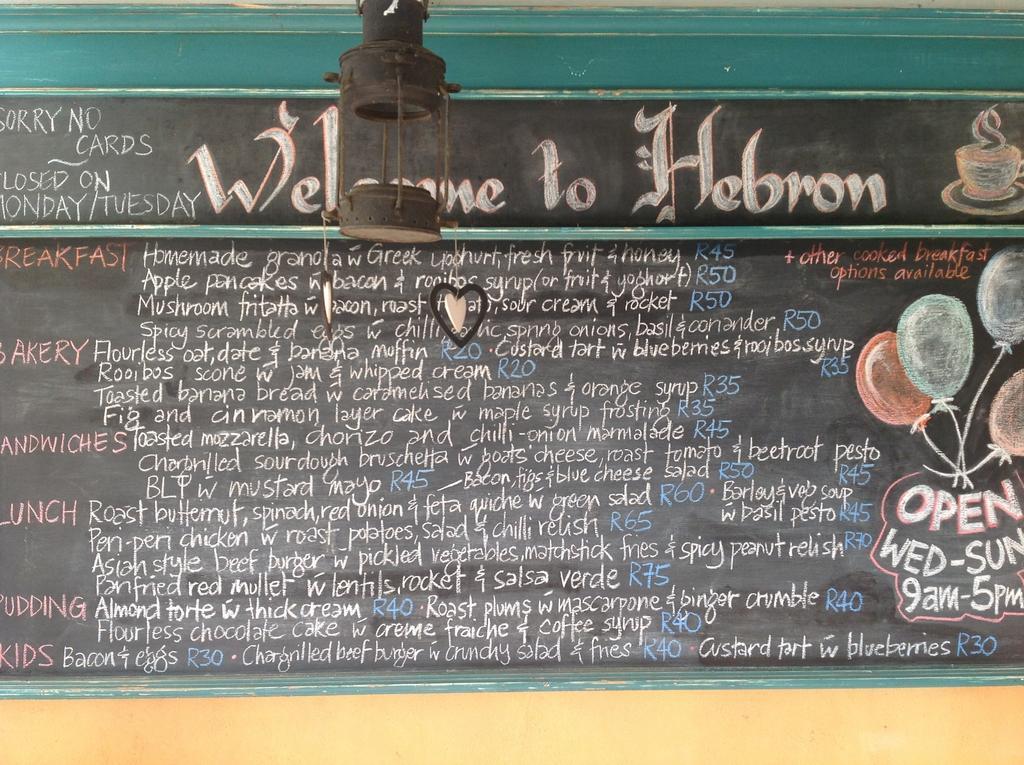 SORRY NO
CARDS
CLOSED ON
MONDAY/TUESDAY
Welcome to Hebron
BREAKFAST Homemade granola w Greek yoghurt, fresh fruit & honey R45
+ other cooked breakfast
options available
Apple pancakes w bacon & rooibos syrup (or fruit & yoghurt) R50
Mushroom fritatta w bacon, roast sour cream & rocket R50
Spicy scrambled eggs w chilli spring onions, basil & coriander R50
BAKERY Flourless oat, date & banana muffin R20 · Custard tart w blueberries & rooibos syrup
R35
Rooibos scone w jam & whipped cream R20
Toasted banana bread w caramelised bananas & orange syrup R35
Fig and cinnamon layer cake w maple syrup frosting R35
SANDWICHES Toasted mozzarella, chorizo and chilli-onion marmalade R45
Chargrilled sourdough bruschetta w goats' cheese, roast tomato & beetroot pesto
R45
BLT w mustard mayo R45 Bacon, figs & blue cheese salad R50
LUNCH Roast butternut, spinach, red onion & feta quiche w green salad R60 · Barley & veg soup
w basil pesto R45
Peri-peri chicken w roast potatoes, salad & chilli relish R65
Asian style beef burger w pickled vegetables, matchstick fries & spicy peanut relish R70
Panfried red mullet w lentils, rocket & salsa verde R75
PUDDING Almond torte w thick cream R40 · Roast plums w mascarpone & ginger crumble R40
Flourless chocolate cake w creme fraiche & coffee syrup R40
KIDS Bacon & eggs R30 · Chargrilled beef burger w crunchy salad & fries R40 · Custard tart w blueberries R30
OPEN
WED-SUN
9am-5pm